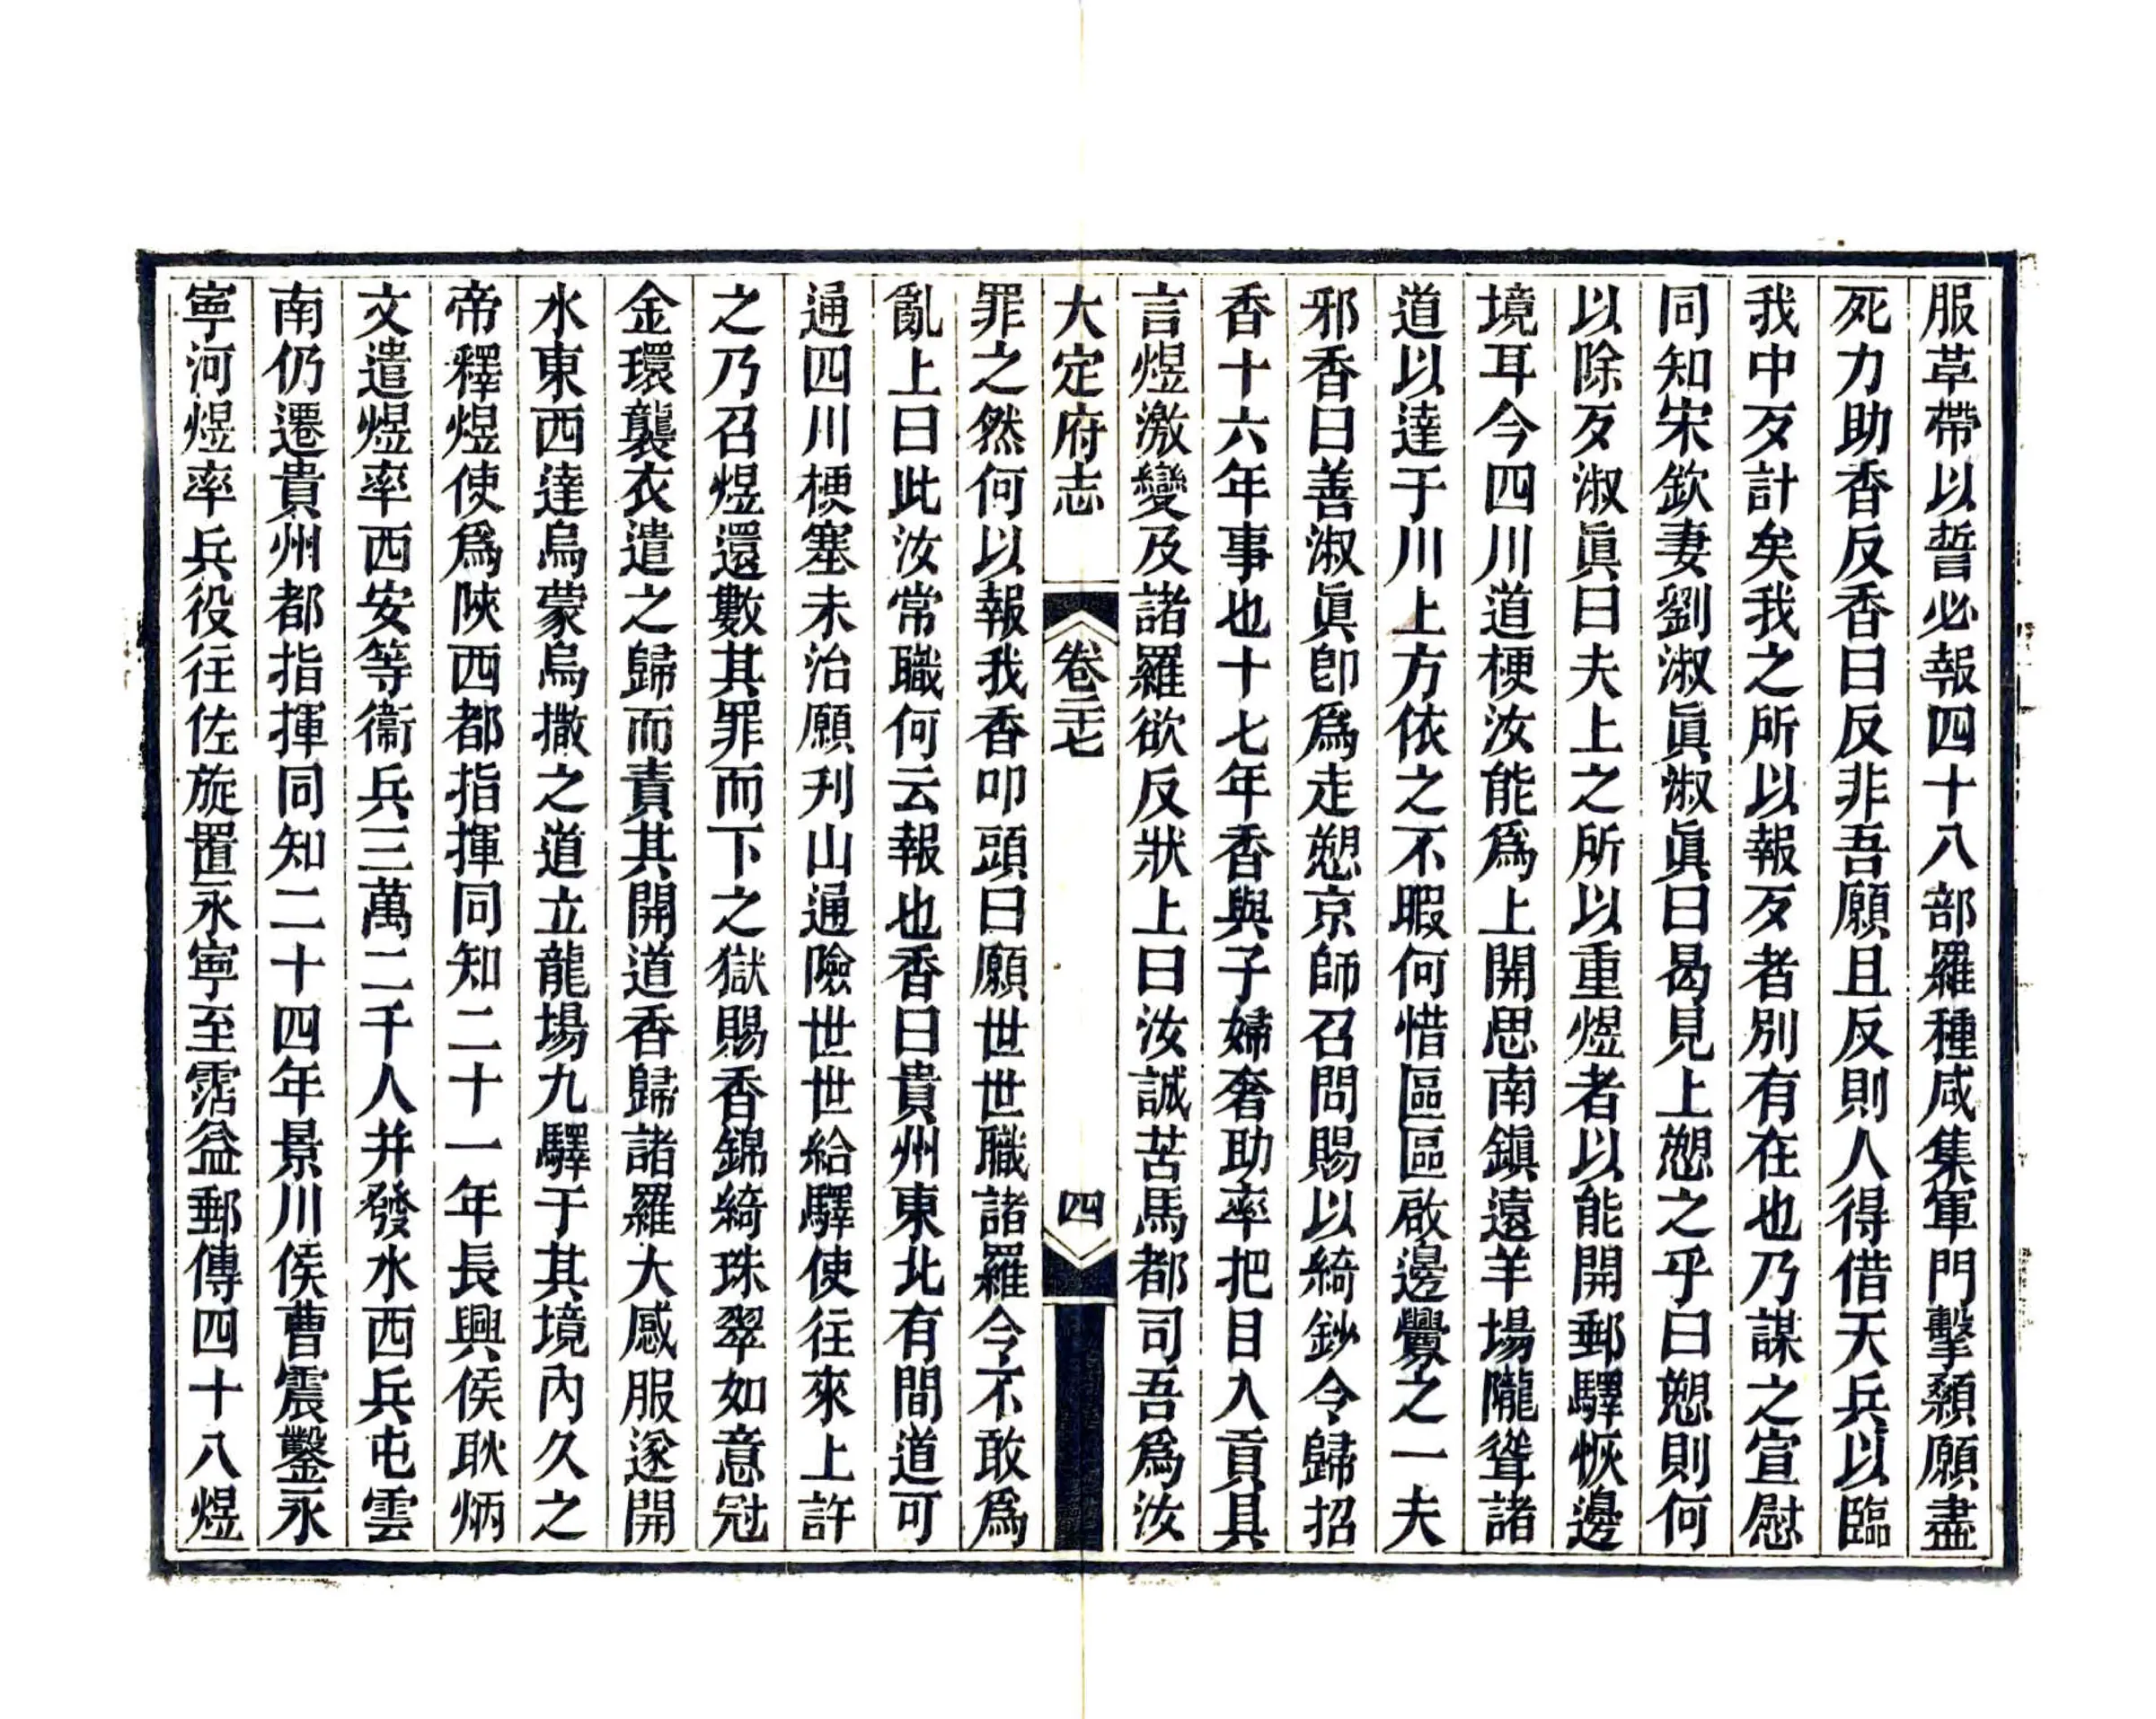 服草帶以誓必報四十八部羅種咸集軍門擊顙願盡
死力助香反香曰反非吾願且反則人得借天兵以臨
我中歹計矣我之所以報歹者別有在也乃謀之宣慰
同知宋欽妻劉淑眞淑眞曰曷見上愬之乎曰愬則何
以除歹淑眞曰夫上之所以重煜者以能開郵驛恢邊
境耳今四川道梗汝能爲上開思南鎭遠羊場隴聳諸
道以達于川上方依之不暇何惜區區啟邊釁之一夫
邪香曰善淑眞卽爲走愬京師召問賜以綺鈔令歸招
香十六年事也十七年香與子婦奢助率把目入貢具
言煜激變及諸羅欲反狀上曰汝誠苦馬都司吾爲汝
大定府志 卷二十七 四
罪之然何以報我香叩頭曰願世世職諸羅令不敢爲
亂上曰此汝常職何云報也香曰貴州東北有間道可
通四川梗塞未治願刋山通險世世給驛使往來上許
之乃召煜還數其罪而下之獄賜香錦綺珠翠如意冠
金環襲衣遣之歸而責其開道香歸諸羅大感服遂開
水東西達烏蒙烏撒之道立龍場九驛于其境內久之
帝釋煜使爲陝西都指揮同知二十一年長興侯耿炳
文遣煜率西安等衞兵三萬二千人幷發水西兵屯雲
南仍遷貴州都指揮同知二十四年景川侯曹震鑿永
寧河煜率兵役往佐旋置永寧至霑益郵傳四十八煜